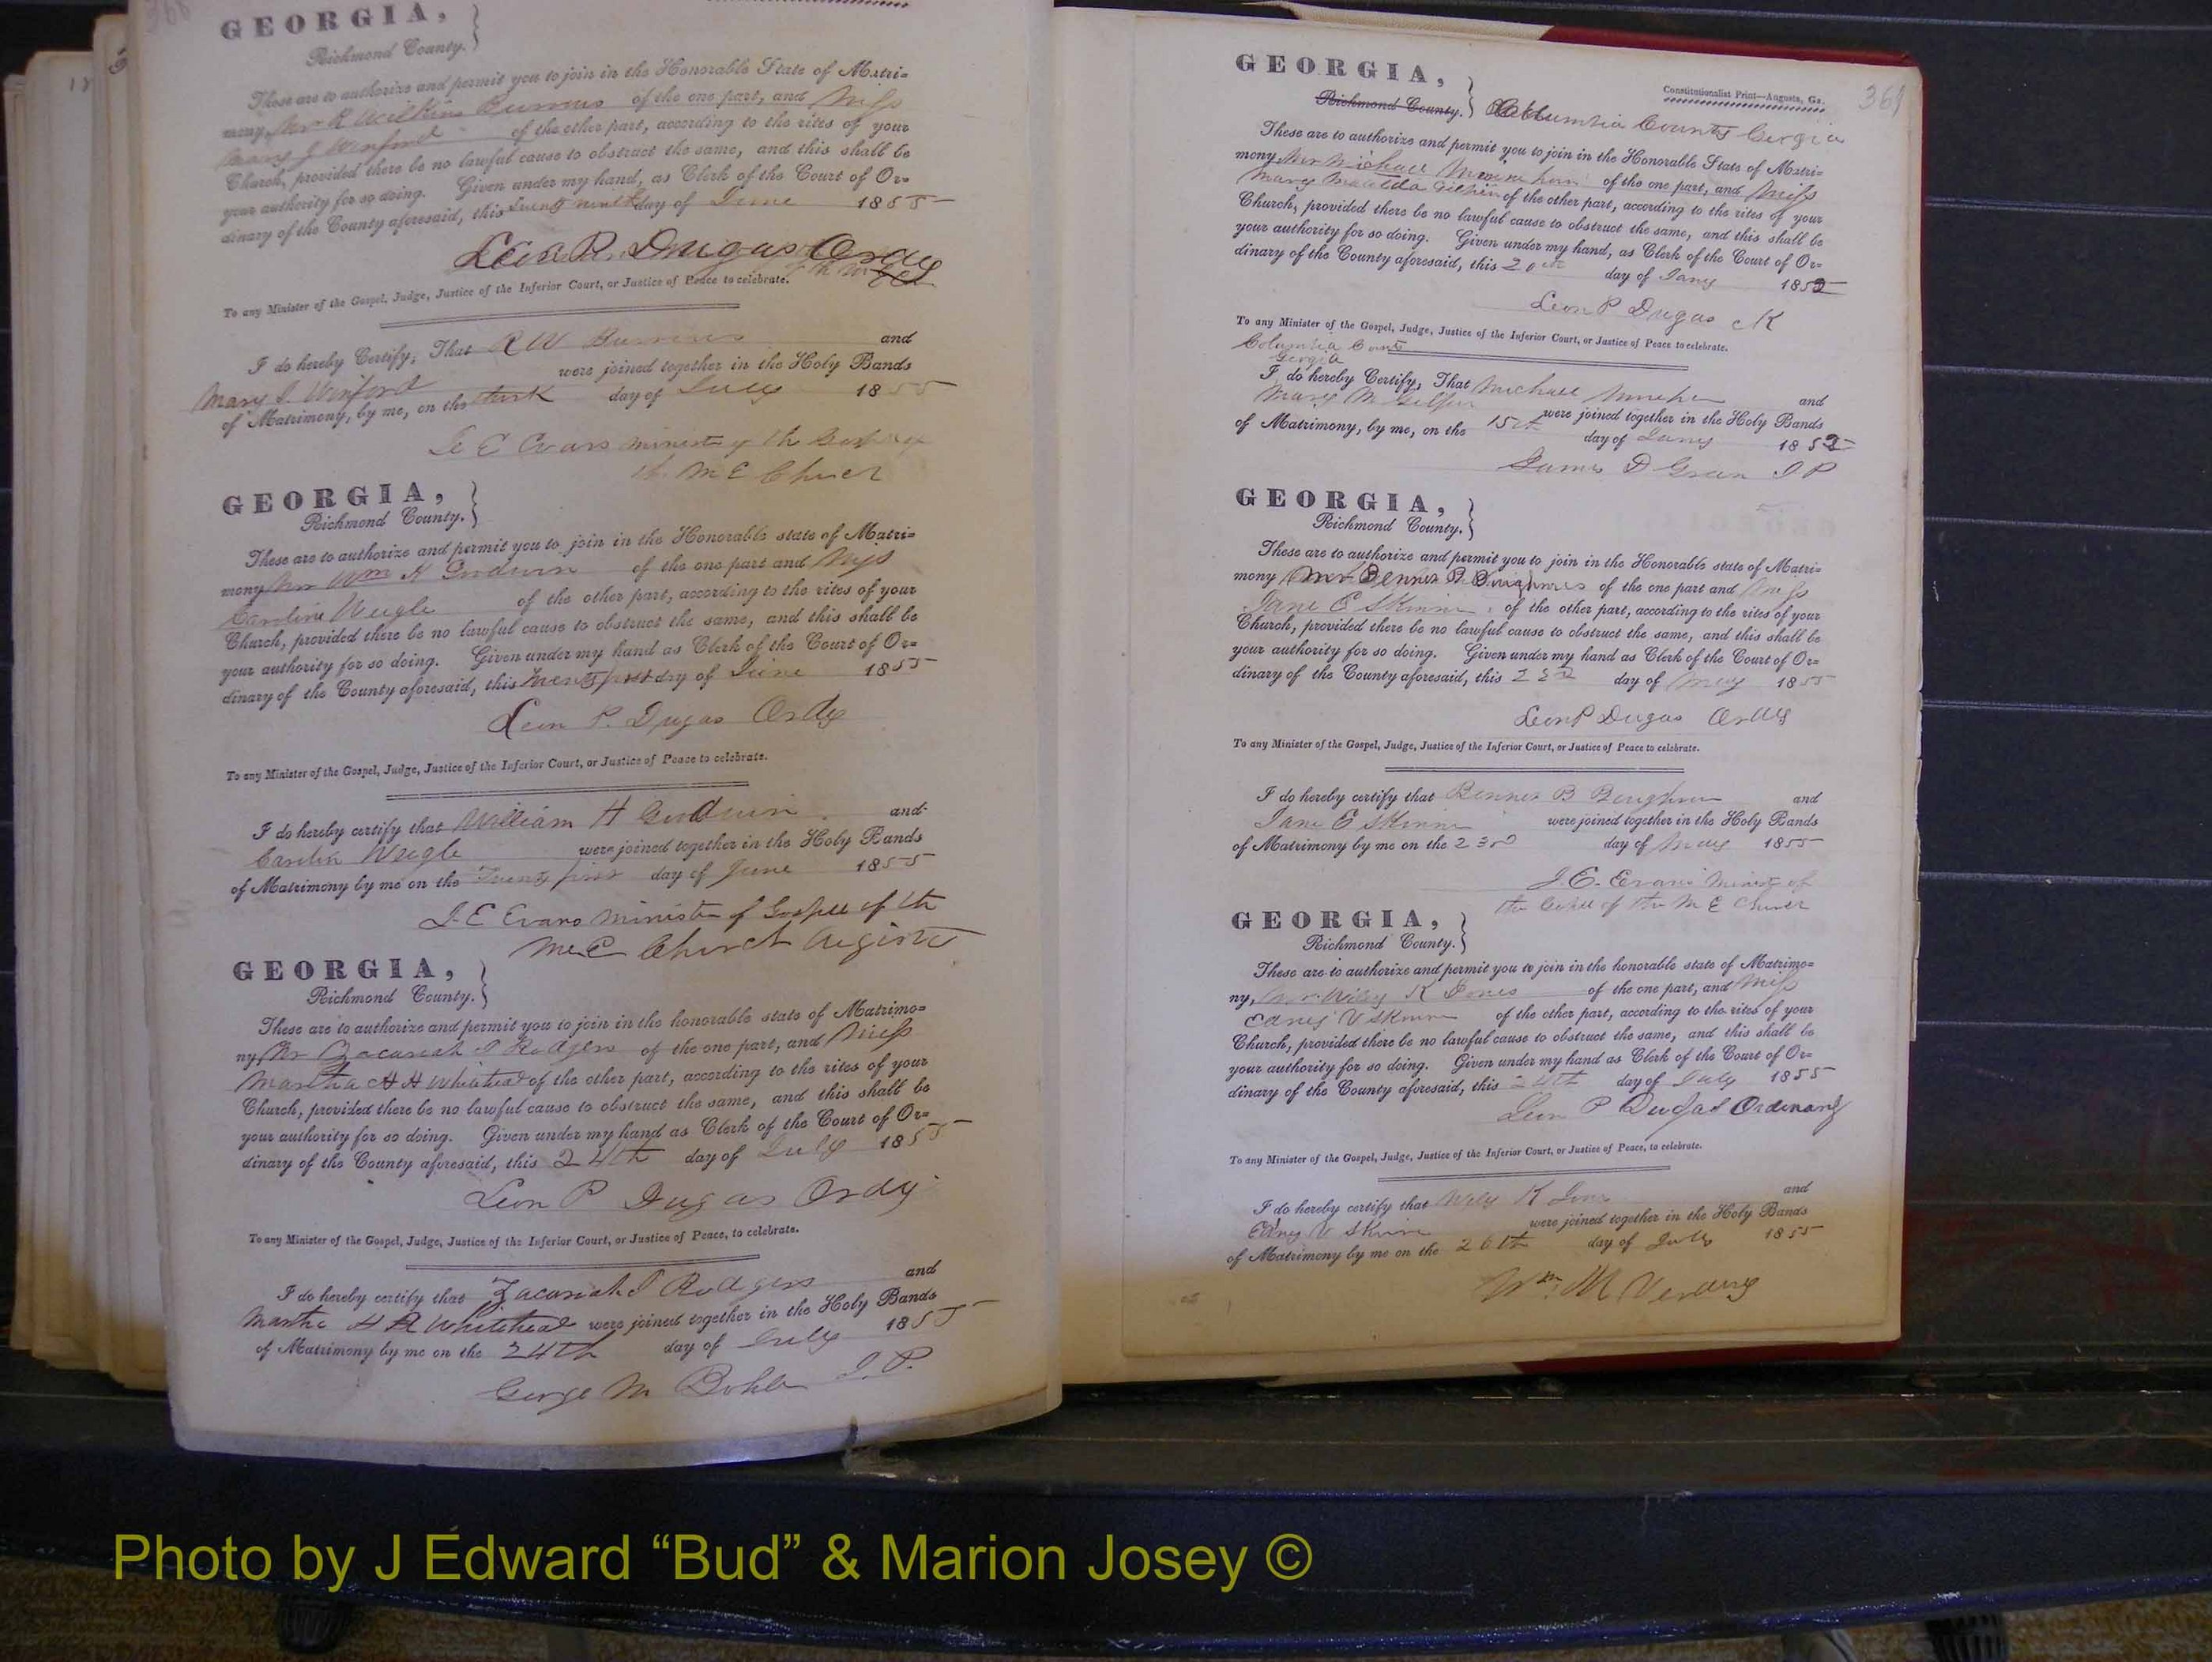 368
GEORGIA,
Richmond County.
These are to authorize and permit you to join in the Honorable State of Matri=
mony Mr R Wilkins of the one part, and Miss
Mary J Winford of the other part, according to the rites of your
Church, provided there be no lawful cause to obstruct the same, and this shall be
your authority for so doing. Given under my hand, as Clerk of the Court of Or=
dinary of the County aforesaid, this day of June 1855
Leon P. Dugas Ordy
To any Minister of the Gospel, Judge, Justice of the Inferior Court, or Justice of Peace to celebrate.
I do hereby Certify, That R W and
Mary J. Winford were joined together in the Holy Bands
of Matrimony, by me, on the day of July 1855
E Evans minister of the
M E Church
GEORGIA,
Richmond County.
These are to authorize and permit you to join in the Honorable state of Matri=
mony Mr Wm H Goodwin of the one part and Miss
Caroline Weigle of the other part, according to the rites of your
Church, provided there be no lawful cause to obstruct the same, and this shall be
your authority for so doing. Given under my hand as Clerk of the Court of Or=
dinary of the County aforesaid, this Twenty first day of June 1855
Leon P. Dugas Ordy
To any Minister of the Gospel, Judge, Justice of the Inferior Court, or Justice of Peace to celebrate.
I do hereby certify that William H Goodwin and
Weigle were joined together in the Holy Bands
of Matrimony by me on the Twenty first day of June 1855
J. E Evans minister of Gospel of the
M E Church Augusta
GEORGIA,
Richmond County.
These are to authorize and permit you to join in the honorable state of Matrimo=
ny Mr Zacariah P Rodgers of the one part, and Miss
Martha H H Whitehead of the other part, according to the rites of your
Church, provided there be no lawful cause to obstruct the same, and this shall be
your authority for so doing. Given under my hand as Clerk of the Court of Or=
dinary of the County aforesaid, this 24th day of July 1855
Leon P Dugas Ordy
To any Minister of the Gospel, Judge, Justice of the Inferior Court, or Justice of Peace, to celebrate.
I do hereby certify that Zacariah P Rodgers and
Martha H H Whitehead were joined together in the Holy Bands
of Matrimony by me on the 24th day of July 1855
George M J. P.
369
GEORGIA,
Constitutionalist Print—Augusta, Ga.
Richmond County. Collumbia County Gergia
These are to authorize and permit you to join in the Honorable State of Matri=
mony Mr Michael of the one part, and Miss
Mary Matilda of the other part, according to the rites of your
Church, provided there be no lawful cause to obstruct the same, and this shall be
your authority for so doing. Given under my hand, as Clerk of the Court of Or=
dinary of the County aforesaid, this 20th day of Jany 1852
Leon P Dugas
To any Minister of the Gospel, Judge, Justice of the Inferior Court, or Justice of Peace to celebrate.
Columbia County
Georgia
I do hereby Certify, That Michael and
Mary M were joined together in the Holy Bands
of Matrimony, by me, on the 15th day of Jany 1852
James D Green J P
GEORGIA,
Richmond County.
These are to authorize and permit you to join in the Honorable state of Matri=
mony Mr of the one part and Miss
Jane E Skinner of the other part, according to the rites of your
Church, provided there be no lawful cause to obstruct the same, and this shall be
your authority for so doing. Given under my hand as Clerk of the Court of Or=
dinary of the County aforesaid, this day of May 1855
Leon P Dugas Ordy
To any Minister of the Gospel, Judge, Justice of the Inferior Court, or Justice of Peace to celebrate.
I do hereby certify that B and
Jane E Skinner were joined together in the Holy Bands
of Matrimony by me on the 23rd day of May 1855
J. E. Evans Minister of
the Gospel of the M E Church
GEORGIA,
Richmond County.
These are to authorize and permit you to join in the honorable state of Matrimo=
ny, Mr Wiley K Jones of the one part, and Miss
V Skinner of the other part, according to the rites of your
Church, provided there be no lawful cause to obstruct the same, and this shall be
your authority for so doing. Given under my hand as Clerk of the Court of Or=
dinary of the County aforesaid, this 24th day of July 1855
Leon P Dugas Ordinary
To any Minister of the Gospel, Judge, Justice of the Inferior Court, or Justice of Peace, to celebrate.
I do hereby certify that Wiley K Jones and
V Skinner were joined together in the Holy Bands
of Matrimony by me on the 26th day of July 1855
Wm M
Photo by J Edward “Bud” & Marion Josey ©